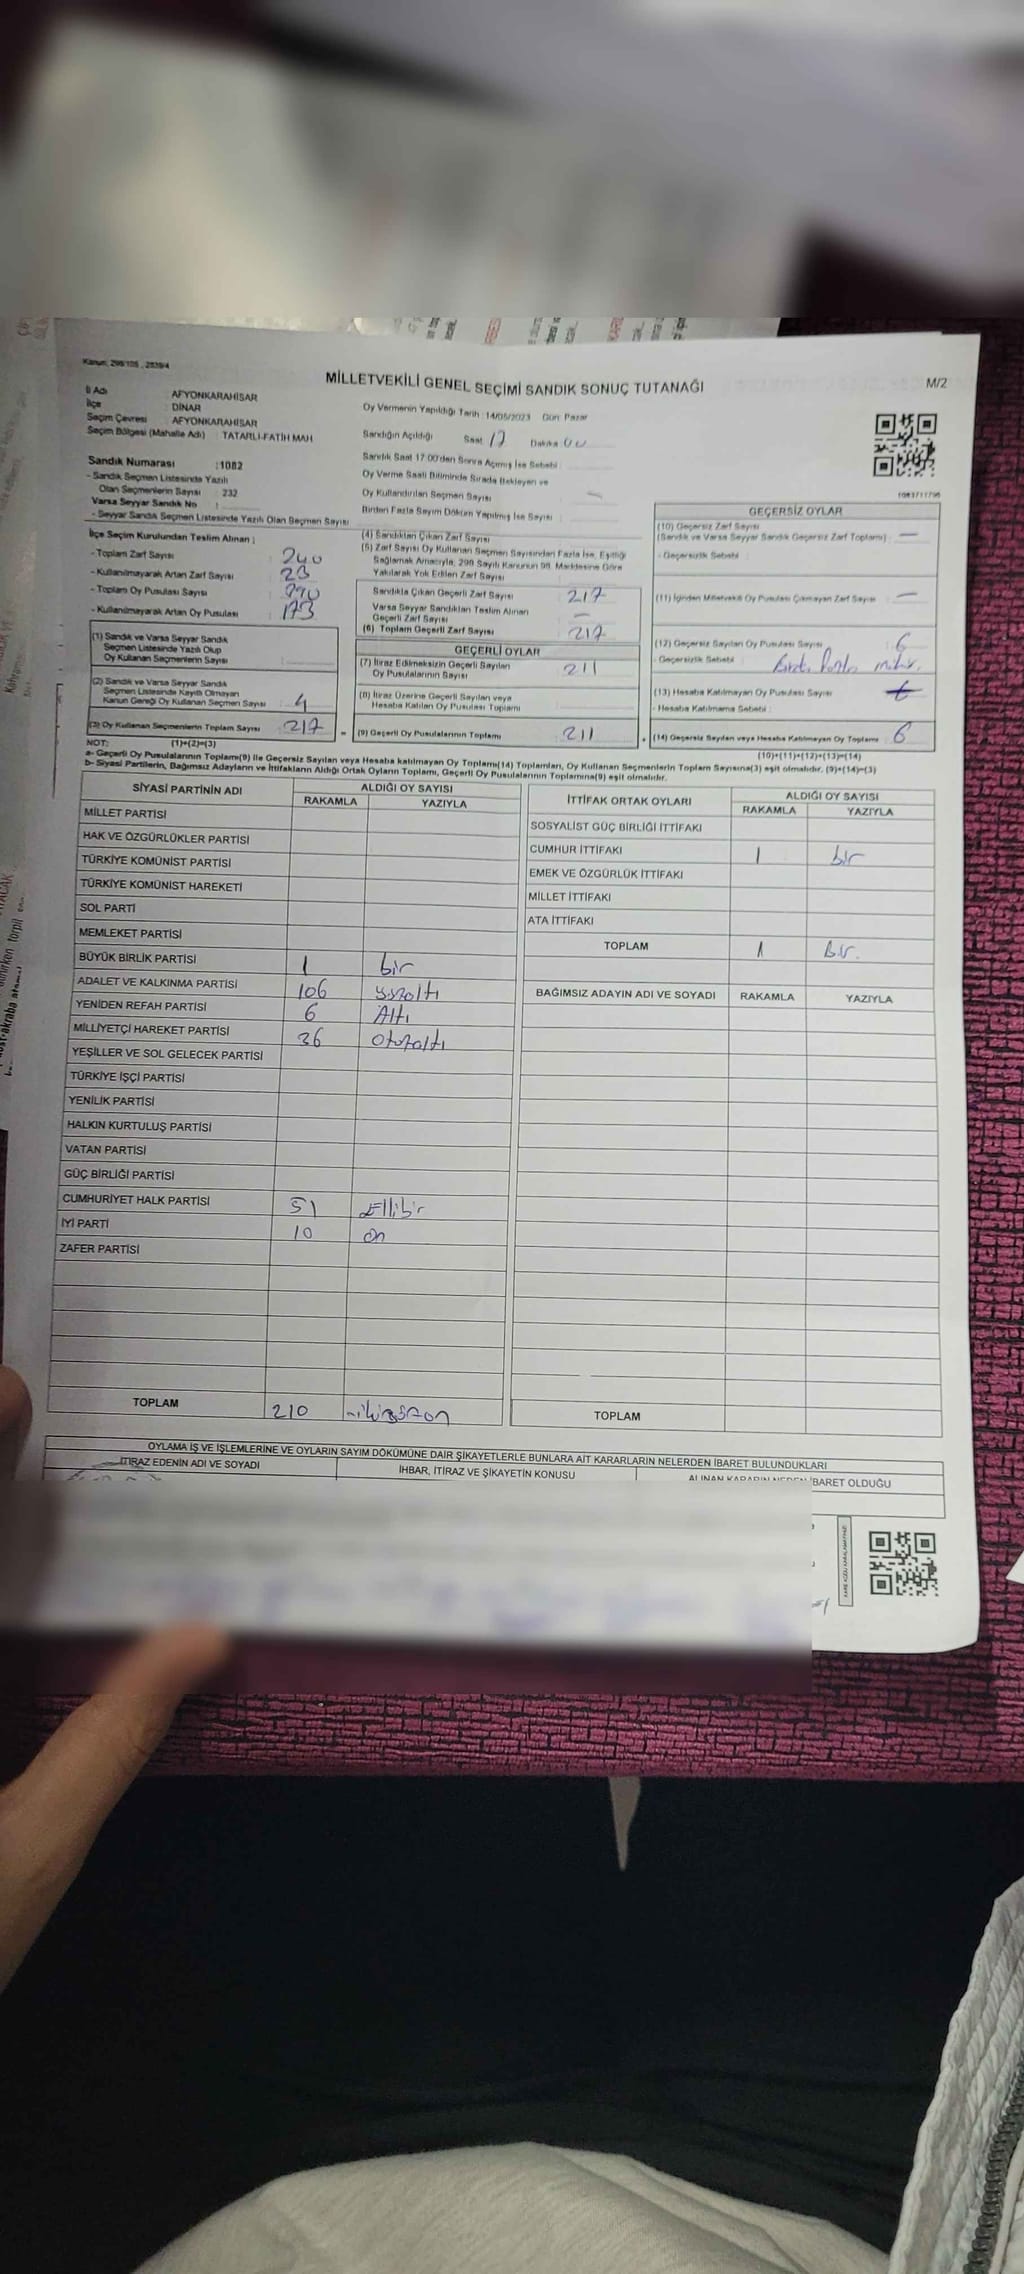 Kanun: 298/105 , 2839/4
MİLLETVEKİLİ GENEL SEÇİMİ SANDIK SONUÇ TUTANAĞI
M/2
İl Adı : AFYONKARAHİSAR
İlçe : DİNAR
Seçim Çevresi : AFYONKARAHİSAR
Seçim Bölgesi (Mahalle Adı) : TATARLI-FATİH MAH
Oy Vermenin Yapıldığı Tarih :14/05/2023 Gün: Pazar
Sandığın Açıldığı Saat 17 Dakika 00
Sandık Saat 17:00'den Sonra Açımış İse Sebebi :
Oy Verme Saati Bitiminde Sırada Bekleyen ve
Oy Kullandırılan Seçmen Sayısı
Birden Fazla Sayım Döküm Yapılmış İse Sayısı :
Sandık Numarası :1082
- Sandık Seçmen Listesinde Yazılı
Olan Seçmenlerin Sayısı : 232
Varsa Seyyar Sandık No :
- Seyyar Sandık Seçmen Listesinde Yazılı Olan Seçmen Sayısı
İlçe Seçim Kurulundan Teslim Alınan :
- Toplam Zarf Sayısı : 240
- Kullanılmayarak Artan Zarf Sayısı : 23
- Toplam Oy Pusulası Sayısı :
- Kullanılmayarak Artan Oy Pusulası : 173
(1) Sandık ve Varsa Seyyar Sandık
Seçmen Listesinde Yazılı Olup
Oy Kullanan Seçmenlerin Sayısı
(2) Sandık ve Varsa Seyyar Sandık
Seçmen Listesinde Kayıtlı Olmayan
Kanun Gereği Oy Kullanan Seçmen Sayısı : 4
(3) Oy Kullanan Seçmenlerin Toplam Sayısı : 217
(4) Sandıktan Çıkan Zarf Sayısı
(5) Zarf Sayısı Oy Kullanan Seçmen Sayısından Fazla İse, Eşitliği
Sağlamak Amacıyla, 298 Sayılı Kanunun 98. Maddesine Göre
Yakılarak Yok Edilen Zarf Sayısı
Sandıkta Çıkan Geçerli Zarf Sayısı : 217
Varsa Seyyar Sandıktan Teslim Alınan
Geçerli Zarf Sayısı : —
(6) Toplam Geçerli Zarf Sayısı : 217
GEÇERLİ OYLAR
(7) İtiraz Edilmeksizin Geçerli Sayılan
Oy Pusulalarının Sayısı : 211
(8) İtiraz Üzerine Geçerli Sayılan veya
Hesaba Katılan Oy Pusulası Toplamı
(9) Geçerli Oy Pusulalarının Toplamı : 211
GEÇERSİZ OYLAR
(10) Geçersiz Zarf Sayısı
(Sandık ve Varsa Seyyar Sandık Geçersiz Zarf Toplamı) : —
- Geçersizlik Sebebi :
(11) İçinden Milletvekili Oy Pusulası Çıkmayan Zarf Sayısı : —
(12) Geçersiz Sayılan Oy Pusulası Sayısı : 6
- Geçersizlik Sebebi : fazla mühür.
(13) Hesaba Katılmayan Oy Pusulası Sayısı
- Hesaba Katılmama Sebebi :
(14) Geçersiz Sayılan veya Hesaba Katılmayan Oy Toplamı : 6
NOT: (1)+(2)=(3) (10)+(11)+(12)+(13)=(14)
a- Geçerli Oy Pusulaları Toplamı(9) ile Geçersiz Sayılan veya Hesaba katılmayan Oy Toplamı(14) Toplamları, Oy Kullanan Seçmenlerin Toplam Sayısına(3) eşit olmalıdır. (9)+(14)=(3)
b- Siyasi Partilerin, Bağımsız Adayların ve İttifakların Aldığı Ortak Oyların Toplamı, Geçerli Oy Pusulalarının Toplamına(9) eşit olmalıdır.
SİYASİ PARTİNİN ADI ALDIĞI OY SAYISI
RAKAMLA YAZIYLA
MİLLET PARTİSİ
HAK VE ÖZGÜRLÜKLER PARTİSİ
TÜRKİYE KOMÜNİST PARTİSİ
TÜRKİYE KOMÜNİST HAREKETİ
SOL PARTİ
MEMLEKET PARTİSİ
BÜYÜK BİRLİK PARTİSİ 1 bir
ADALET VE KALKINMA PARTİSİ 106 yüzaltı
YENİDEN REFAH PARTİSİ 6 Altı
MİLLİYETÇİ HAREKET PARTİSİ 36 otuzaltı
YEŞİLLER VE SOL GELECEK PARTİSİ
TÜRKİYE İŞÇİ PARTİSİ
YENİLİK PARTİSİ
HALKIN KURTULUŞ PARTİSİ
VATAN PARTİSİ
GÜÇ BİRLİĞİ PARTİSİ
CUMHURİYET HALK PARTİSİ 51 Ellibir
İYİ PARTİ 10 on
ZAFER PARTİSİ
TOPLAM 210 ikiyüzon
İTTİFAK ORTAK OYLARI ALDIĞI OY SAYISI
RAKAMLA YAZIYLA
SOSYALİST GÜÇ BİRLİĞİ İTTİFAKI
CUMHUR İTTİFAKI 1 bir
EMEK VE ÖZGÜRLÜK İTTİFAKI
MİLLET İTTİFAKI
ATA İTTİFAKI
TOPLAM 1 Bir.
BAĞIMSIZ ADAYIN ADI VE SOYADI RAKAMLA YAZIYLA
TOPLAM
OYLAMA İŞ VE İŞLEMLERİNE VE OYLARIN SAYIM DÖKÜMÜNE DAİR ŞİKAYETLERLE BUNLARA AİT KARARLARIN NELERDEN İBARET BULUNDUKLARI
İTİRAZ EDENİN ADI VE SOYADI İHBAR, İTİRAZ VE ŞİKAYETİN KONUSU ALINAN KARARIN NEDEN İBARET OLDUĞU